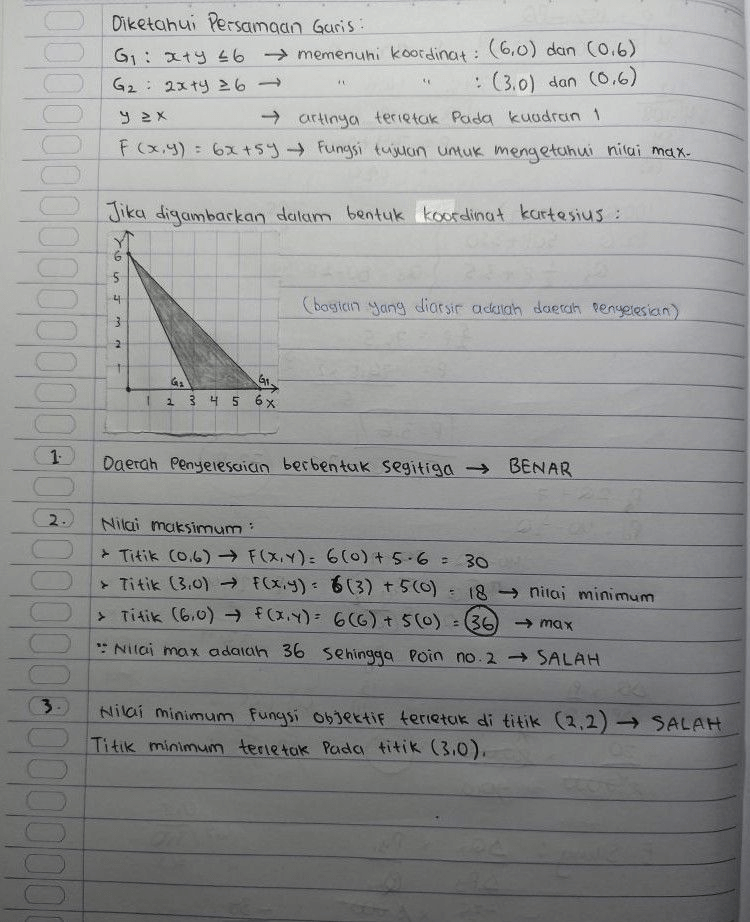 Diketahui Persamaan Garis :
G₁ : x+y ≤ 6 → memenuhi koordinat : (6,0) dan (0,6)
G₂ : 2x+y ≥ 6 → " " : (3,0) dan (0,6)
y ≥ x → artinya terletak Pada kuadran 1
F (x,y) = 6x + 5y → Fungsi tujuan untuk mengetahui nilai max.
Jika digambarkan dalam bentuk koordinat kartesius :
Y
6
5
4
3
2
1
G₂ G₁
1 2 3 4 5 6 X
(bagian yang diarsir adalah daerah penyelesian)
1. Daerah Penyelesaian berbentuk segitiga → BENAR
2. Nilai maksimum :
> Titik (0,6) → F(x,y) = 6(0) + 5·6 = 30
> Titik (3,0) → F(x,y) = 6(3) + 5(0) = 18 → nilai minimum
> Titik (6,0) → f(x,y) = 6(6) + 5(0) = 36 → max
∵ Nilai max adalah 36 sehingga Poin no.2 → SALAH
3. Nilai minimum Fungsi objektif terletak di titik (2,2) → SALAH
Titik minimum terletak Pada titik (3,0).